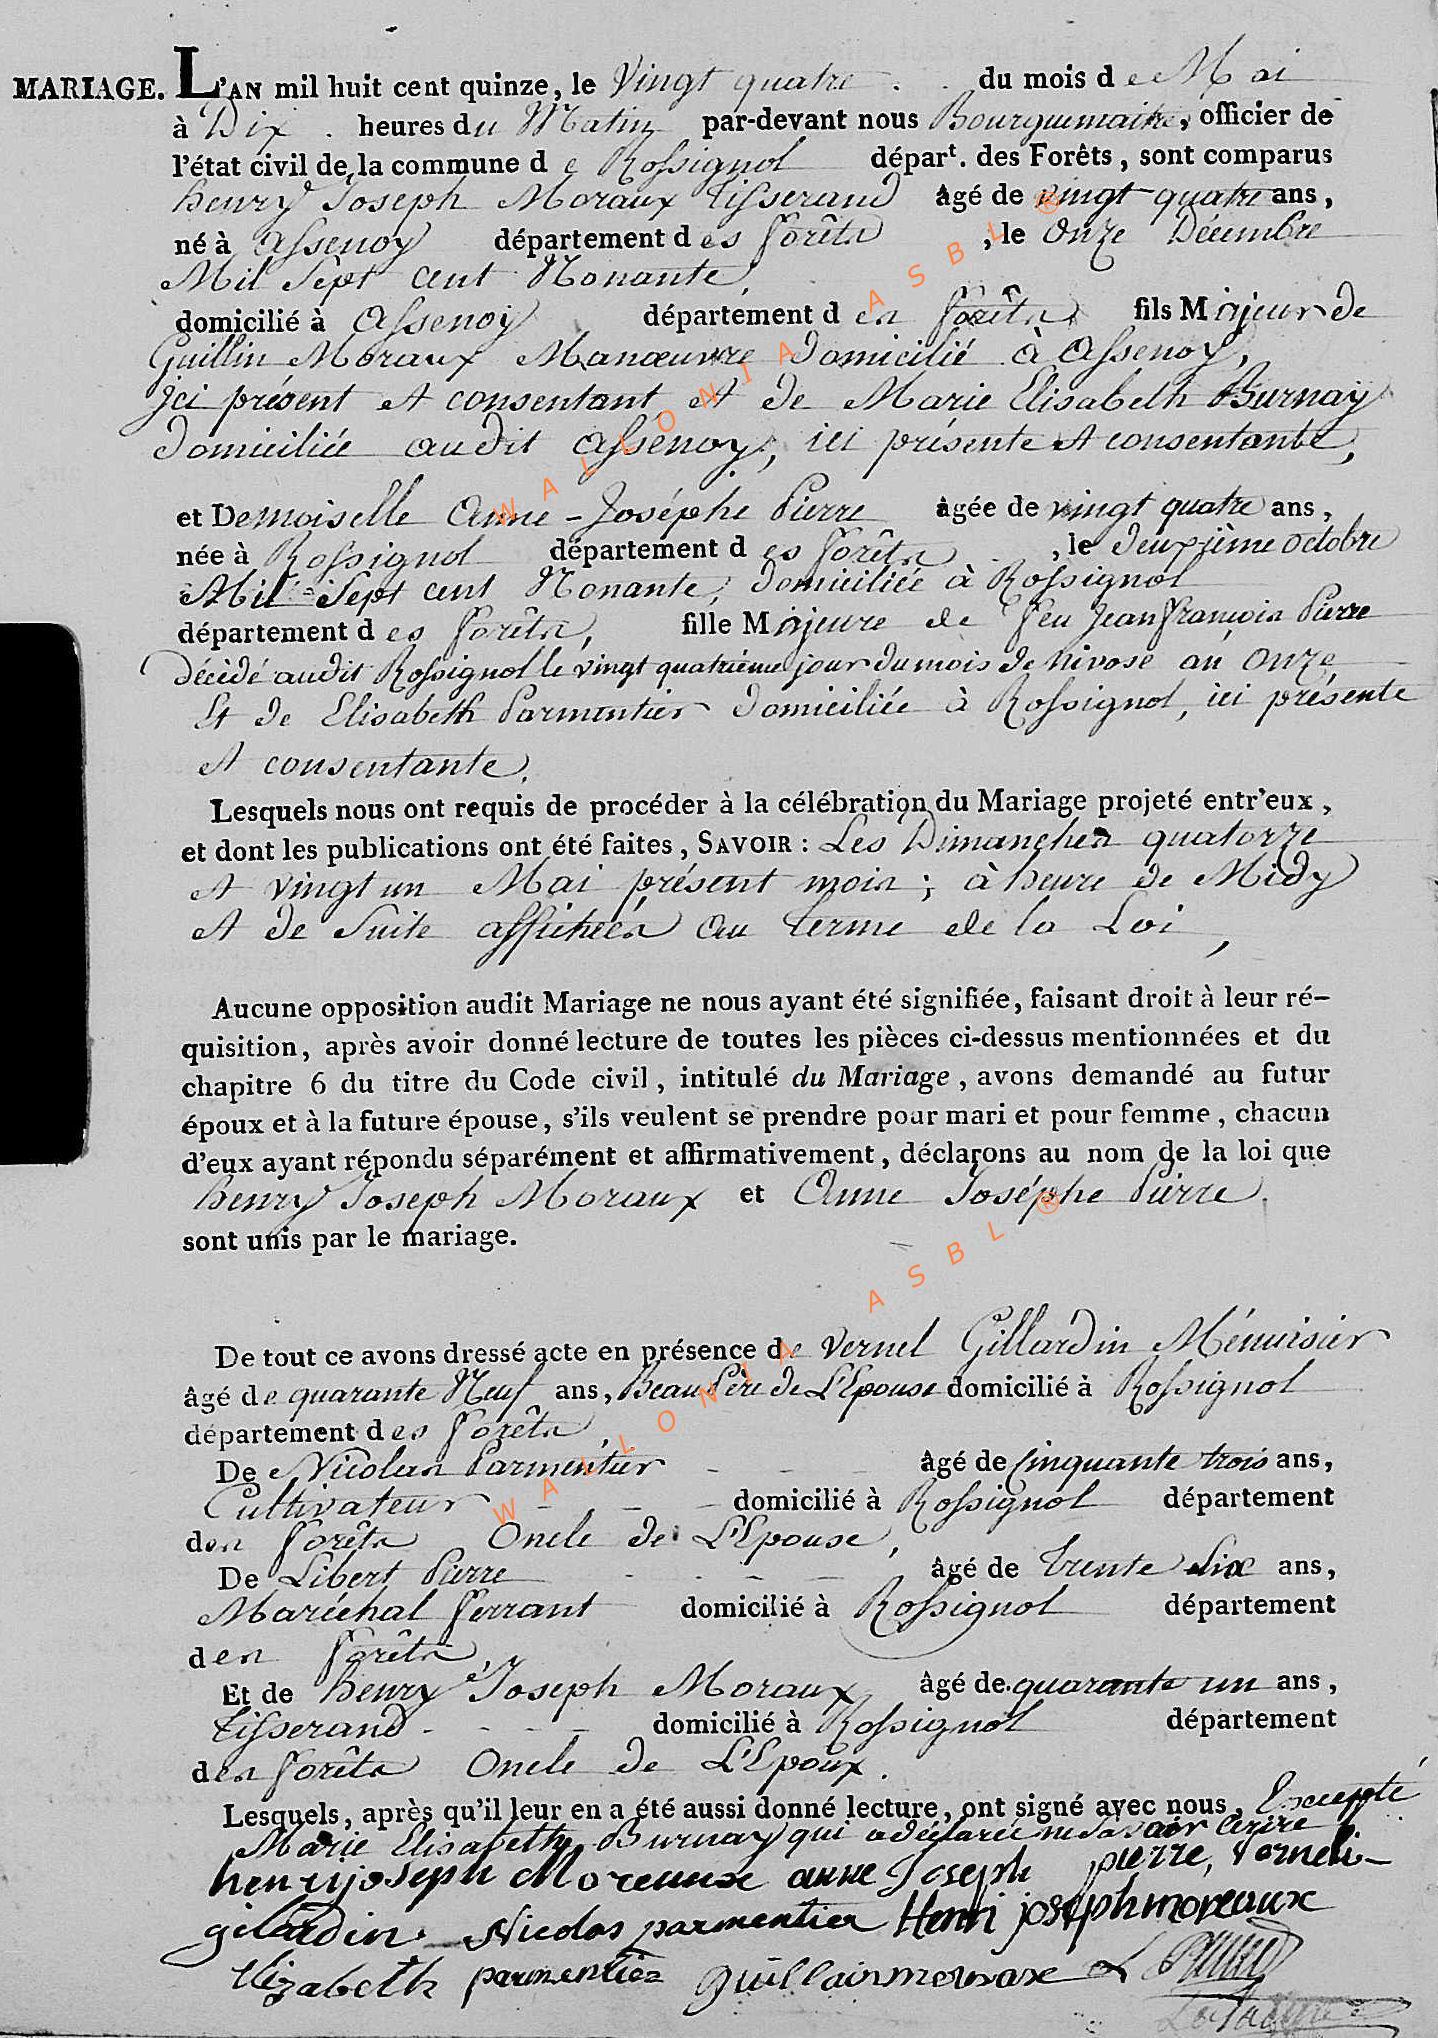 MARIAGE. L'AN mil huit cent quinze, le Vingt quatre du mois de Mai
à Dix heures du Matin par-devant nous Bourguemaitre, officier de
l'état civil de la commune de Rossignol départ. des Forêts, sont comparus
henry Joseph Moraux Tisserand âgé de vingt quatre ans,
né à Assenoy département des forêts, le Onze Décembre
Mil Sept cent Nonante,
domicilié à Assenoy département des forêts fils Majeur de
Guillin Moraux Manœuvre domicilié à Assenoy,
Jci présent et consentant et de Marie Elisabeth Burnay
domiciliée audit Assenoy, ici présente et consentante,
et Demoiselle Anne-Joséphe Pierre âgée de vingt quatre ans,
née à Rossignol département des forêts, le deuxième octobre
Mil Sept cent Nonante, domiciliée à Rossignol
département des forêts, fille Majeure de feu Jean françois Pierre
Décédé audit Rossignol le vingt quatrième jour du mois de Nivose an Onze
Et de Elisabeth Parmentier domiciliée à Rossignol, ici présente
et consentante.
Lesquels nous ont requis de procéder à la célébration du Mariage projeté entr'eux,
et dont les publications ont été faites, SAVOIR : Les Dimanches quatorze
et vingt un Mai présent mois ; à heure de Midy
et de Suite affichées au terme de la Loi,
Aucune opposition audit Mariage ne nous ayant été signifiée, faisant droit à leur ré-
quisition, après avoir donné lecture de toutes les pièces ci-dessus mentionnées et du
chapitre 6 du titre du Code civil, intitulé du Mariage, avons demandé au futur
époux et à la future épouse, s'ils veulent se prendre pour mari et pour femme, chacun
d'eux ayant répondu séparément et affirmativement, déclarons au nom de la loi que
henry Joseph Moraux et Anne Joséphe Pierre.
sont unis par le mariage.
De tout ce avons dressé acte en présence de Vernel Gillardin Ménuisier
âgé de quarante Neuf ans, Beau Père de L'Epouse domicilié à Rossignol
département des forêts,
De Nicolas Parmentier âgé de Cinquante trois ans,
Cultivateur domicilié à Rossignol département
des forêts Oncle de L'Epouse,
De Libert Pierre âgé de trente Six ans,
Maréchal ferrant domicilié à Rossignol département
des forêts,
Et de henry Joseph Moraux âgé de quarante un ans,
Tisserand domicilié à Rossignol département
des forêts Oncle de L'Epoux.
Lesquels, après qu'il leur en a été aussi donné lecture, ont signé avec nous, Excepté
Marie Elisabeth Burnay qui a déclarée ne Savoir Ecrire
henrijoseph Moreaux anne Joseph pierre, Verneli-
gilardin. Nicolas parmentier Henri joseph moreaux
Elizabeth parmentier guillain moraux L Pierre
WALLONIA ASBL ®
WALLONIA ASBL ®